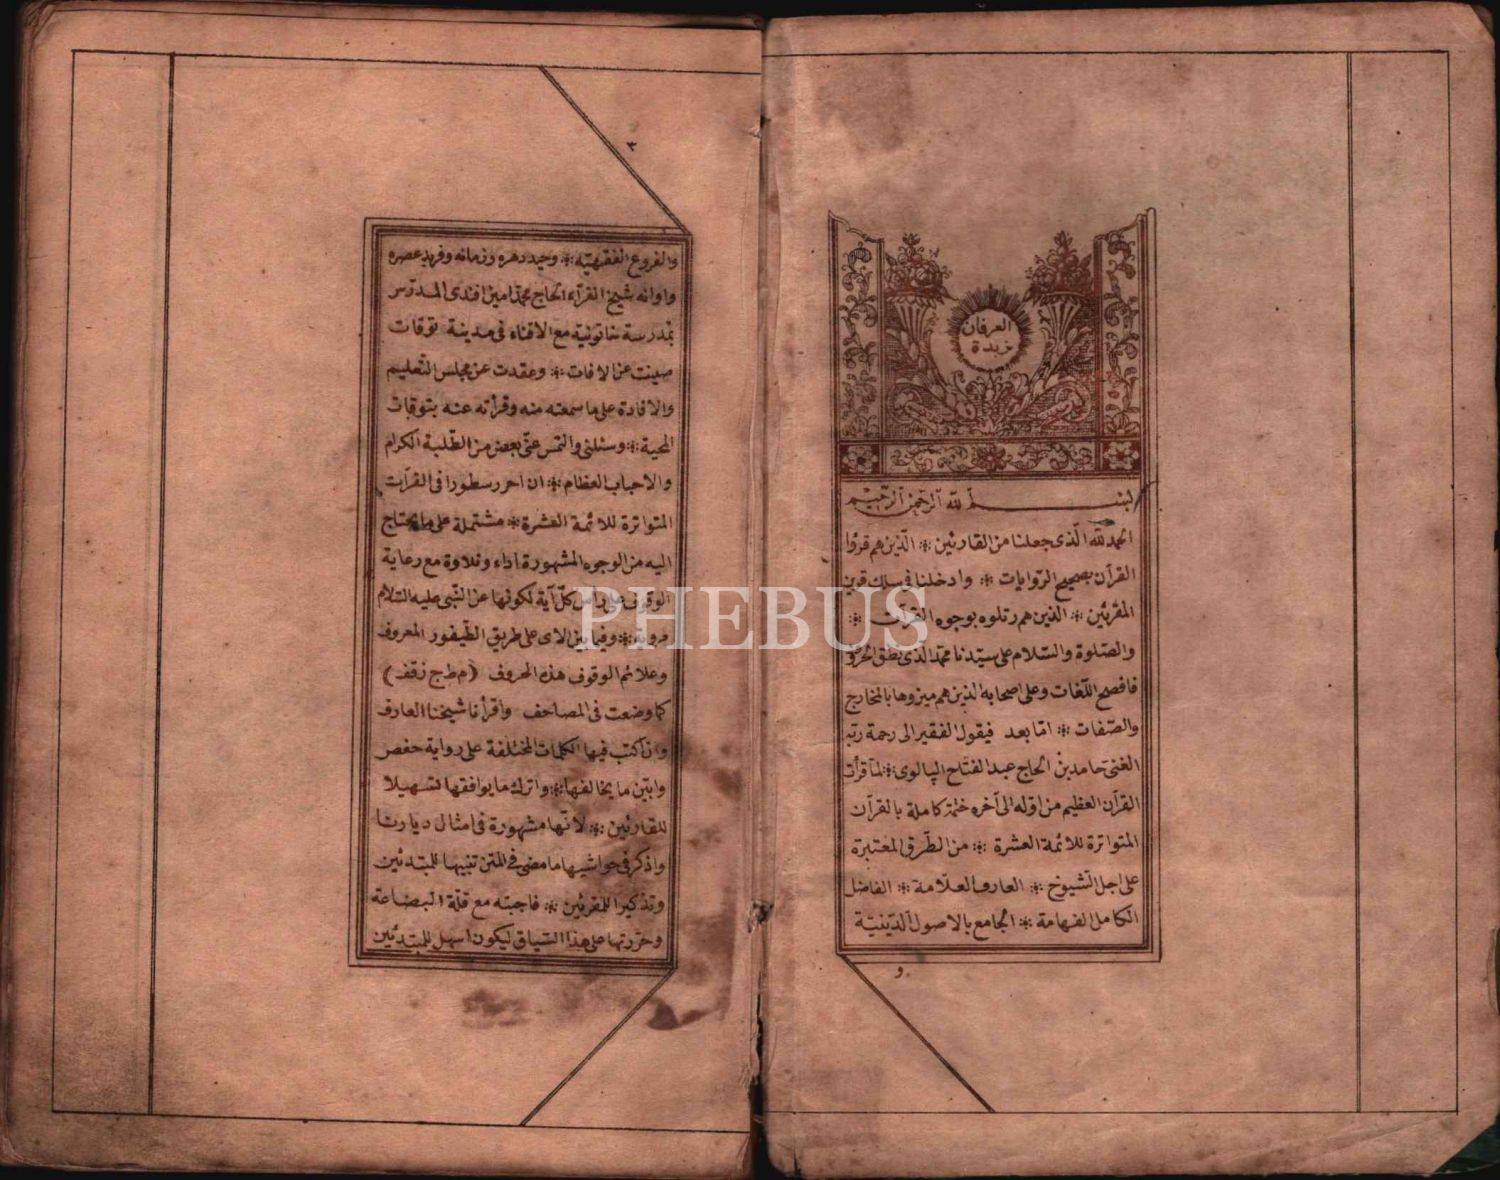 العرفان
زبدة
بسم الله الرحمن الرحيم
الحمد لله الذى جعلنا من القارئين ۞ الذين هم قرؤا
القرآن بصحيح الروايات ۞ وادخلنا فى سلك قرين
المقرئين ۞ الذين هم رتلوه بوجوه القرآت ۞
والصلوة والسلام على سيدنا محمد الذى نطق الحروف
فافصح اللغات وعلى اصحابه الذين هم ميزوها بالمخارج
والصفات ۞ اما بعد فيقول الفقير الى رحمة ربه
الغنى حامد بن الحاج عبد الفتاح الپالوى ۞ لما قرأت
القرآن العظيم من اوله الى آخره ختمة كاملة بالقرآن
المتواترة للائمة العشرة ۞ من الطرق المعتبرة
على اجل الشيوخ ۞ العارف العلامة ۞ الفاضل
الكامل الفهامة ۞ الجامع بالاصول الدينية
و
٣
والفروع الفقهية ۞ وحيد دهره وزمانه وفريد عصره
واوانه شيخ القرآء الحاج محمد امين افندى المدرس
بمدرسة خاتونية مع الافتاء فى مدينة توقات
صينت عن الافات ۞ وعقدت عن مجلس التعليم
والافادة على ما سمعته منه وقرأته عنه بتوقات
المحية ۞ وسئلنى والتمس عنى بعض من الطلبة الكرام
والاحباب العظام ۞ ان احرر سطورا فى القرآت
المتواترة للائمة العشرة ۞ مشتملة على ما يحتاج
اليه من الوجوه المشهورة اداء وتلاوة مع رعاية
الوقوف على رأس كل آية لكونها عن النبى عليه السلام
مروية ۞ وفيما بين الاى على طريق الطيفور المعروف
وعلائم الوقوف هذه الحروف (م ط ج ز قف)
كما وضعت فى المصاحف واقرأنا شيخنا العارف
وان اكتب فيها الكلمات المختلفة على رواية حفص
وابين ما يخالفها ۞ واترك ما يوافقها تسهيلا
للقارئين ۞ لانها مشهورة فى امثال ديارنا
واذكر فى حواشيها ما مضى فى المتن تنبيها للمبتدئين
وتذكيرا للمقرئين ۞ فاجبته مع قلة البضاعة
وحررتها على هذا السياق ليكون اسهل للمبتدئين
PHEBUS